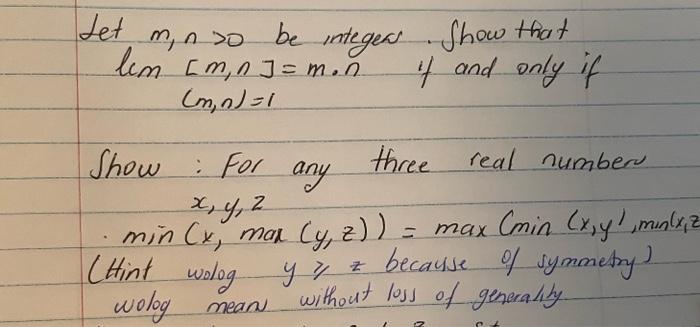 Let m, n >0 be integers . Show that
lcm [m,n] = m.n if and only if
(m,n) = 1
Show : For any three real numbers
x, y, z
. min (x, max (y, z)) = max (min (x,y), min(x,z
(Hint wolog y ≥ z because of symmetry)
wolog means without loss of generality.